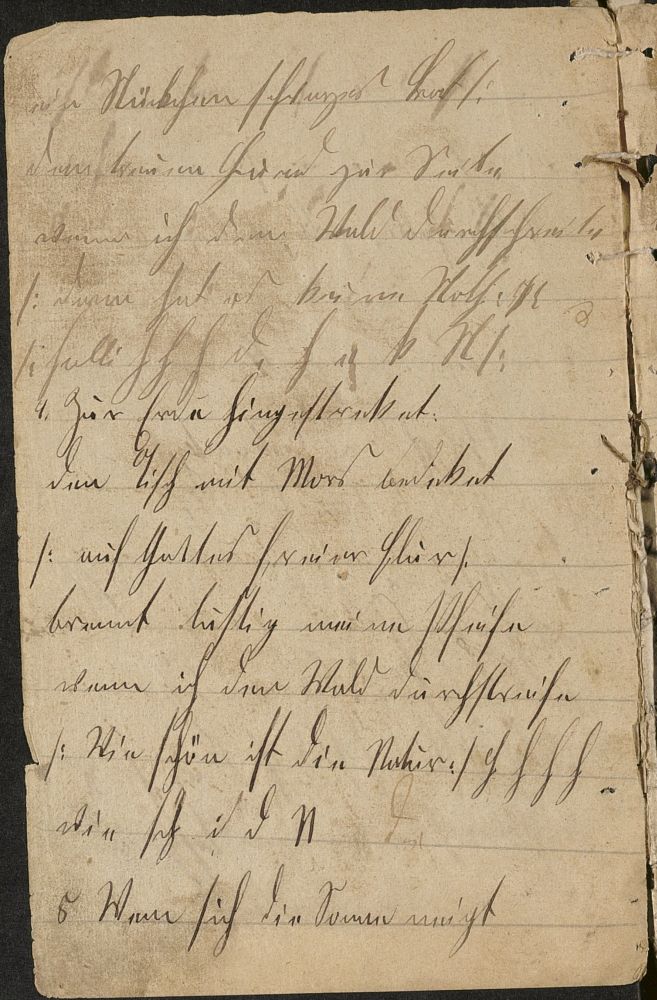 ein Stückchen schwarzes Brod :/:
dem treuen Hund zur Seite
wenn ich dem Wald durchschreite
/: dann hat es keine Noth :/:
/: halli h h h d. h e k N /:
4. Zur Erde hingestreket.
den Tisch mit Mors bedeket
/: auf Gottes freier Flur /:
brennt lustig meine Pfeife
wenn ich den Wald durchstreife
/: Wie schön ist die Natur :/ h h h h
wie sch i d N
5 Wenn sich die Sonne neigt